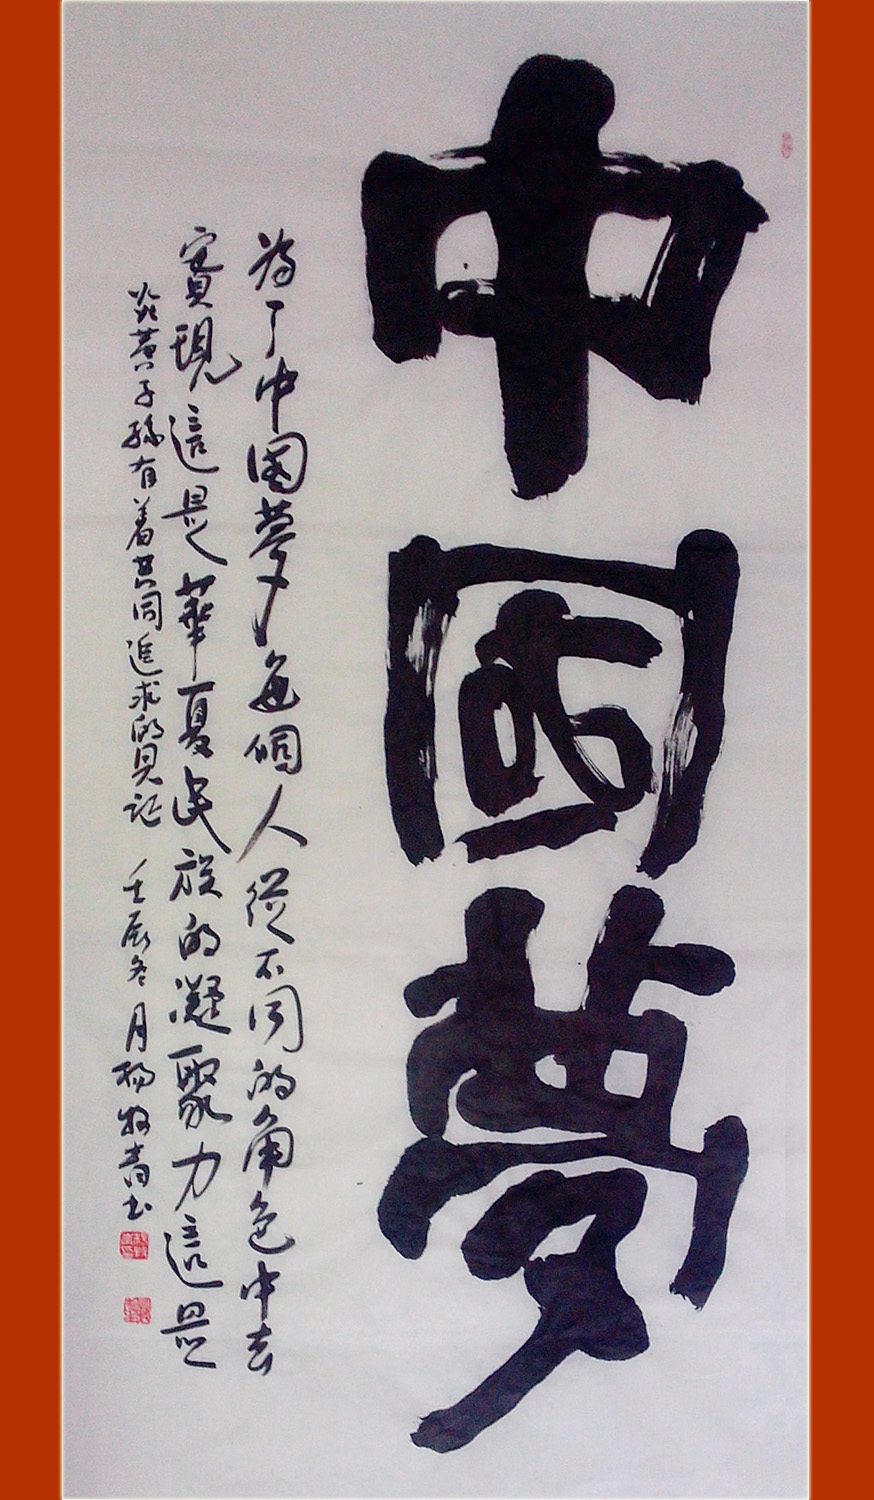 中國夢
為了中国夢每個人從不同的角色中去
實現這是華夏民族的凝聚力這是
炎黄子孫有着共同追求的見証
壬辰冬月楊牧青书